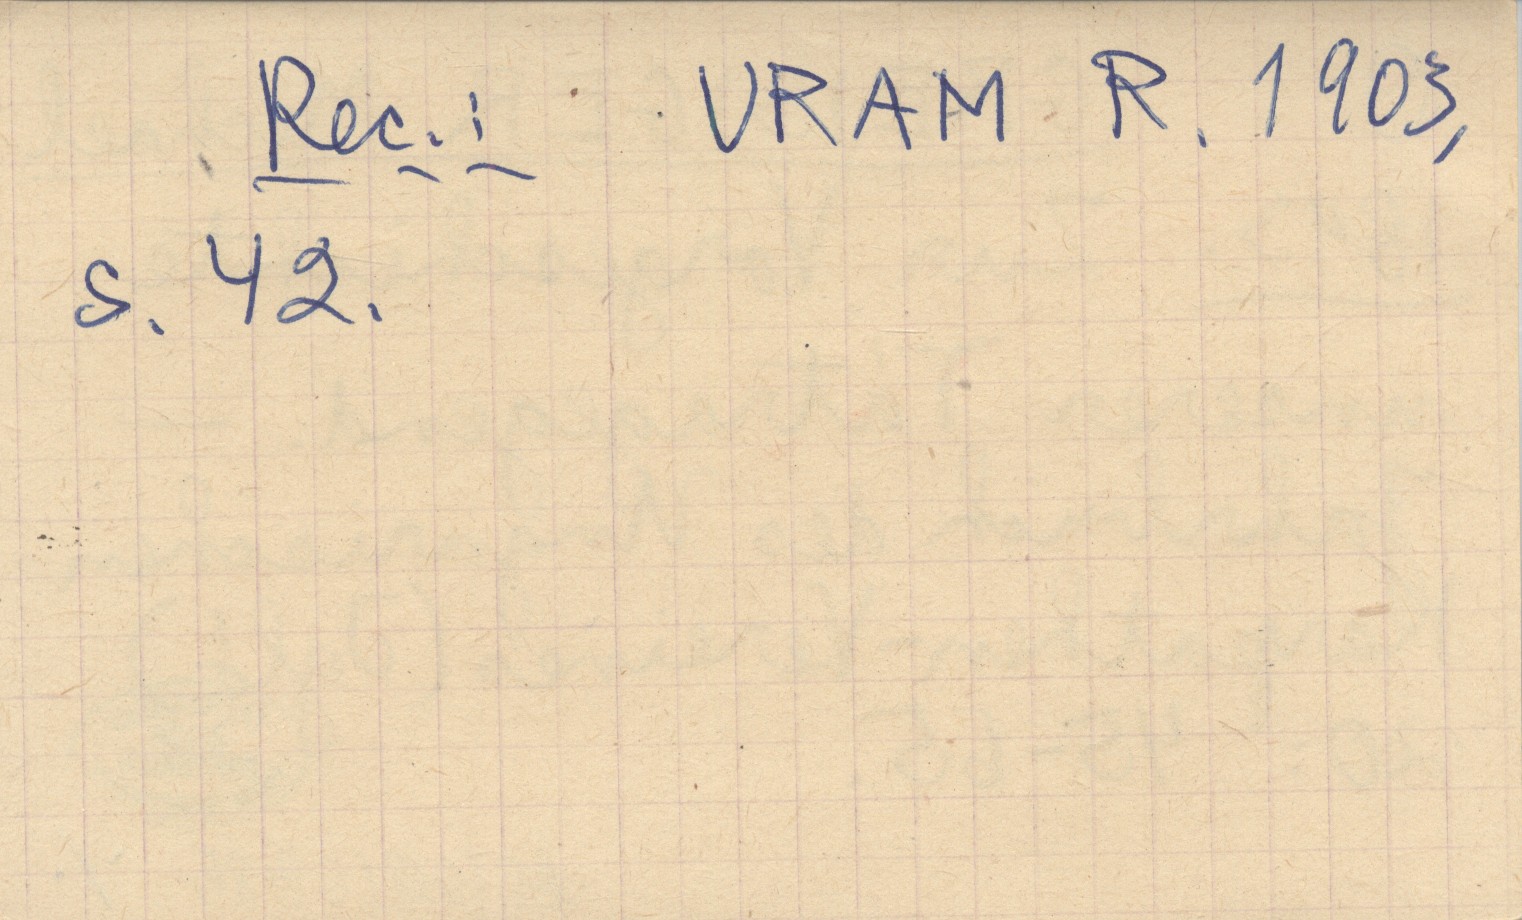 Rec.: VRAM R. 1903,
s. 42.